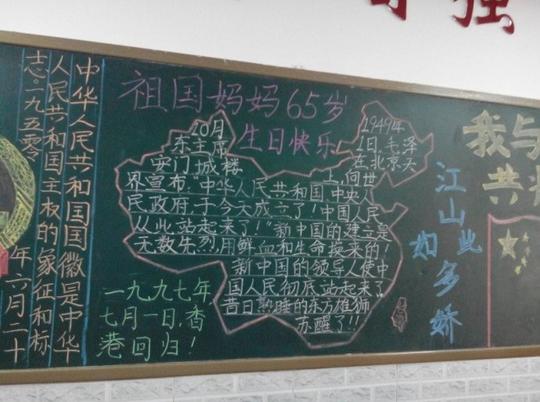 强
中华人民共和国国徽是中华
人民共和国主权的象征和标
志。一九五零
年六月二十
祖国妈妈65岁
生日快乐
1949年
10月
1日,毛泽
东主席
在北京天
安门城楼
上,向世
界宣布:中华人民共和国中央人
民政府,于今天成立了!中国人民
从此站起来了!”新中国的建立是
无数先烈,用鲜血和生命换来的!
新中国的领导人使中
国人民彻底站起来了
昔日熟睡的东方雄狮
苏醒了!!
一九九七年
七月一日,香
港回归!
江山此
如多娇
我与
共